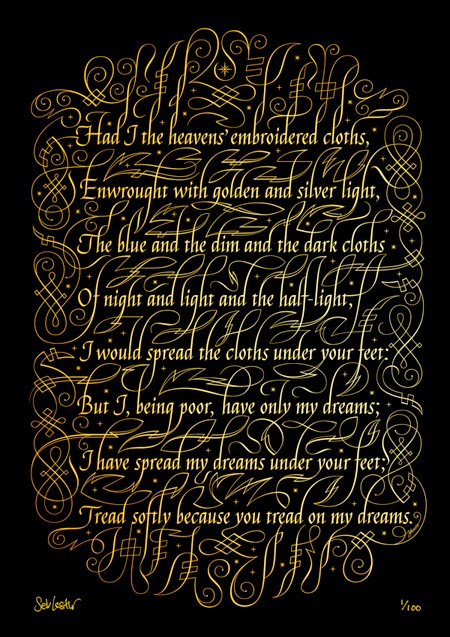 Had I the heavens' embroidered cloths,
Enwrought with golden and silver light,
The blue and the dim and the dark cloths
Of night and light and the half-light,
I would spread the cloths under your feet:
But I, being poor, have only my dreams;
I have spread my dreams under your feet;
Tread softly because you tread on my dreams.
Seb Lester
1/100